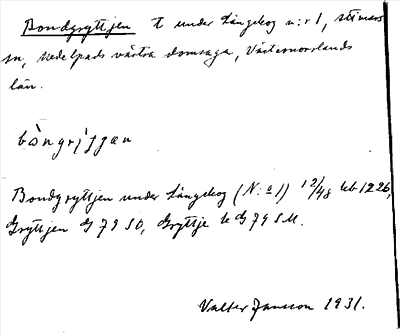 Bondgryttjen t under Långskog n:r 1, Stöde
sn, Medelpads västra domsaga, Västernorrlands
län.
bòngrỳʃʃæn
Bondgryttjen under Långskog (N:o 1) 12/48 lub 1226,
Gryttjen G 79 SO, Gryttje k G 79 SU.
Valter Jansson 1931.